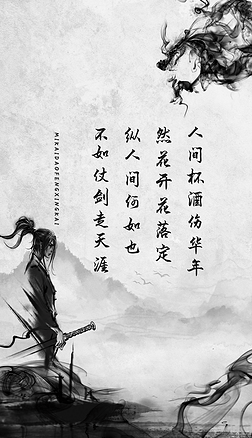 人间杯酒伤华年
然花开花落定
纵人间何如也
不如仗剑走天涯
MIKAIDAOFENGXINGKAI